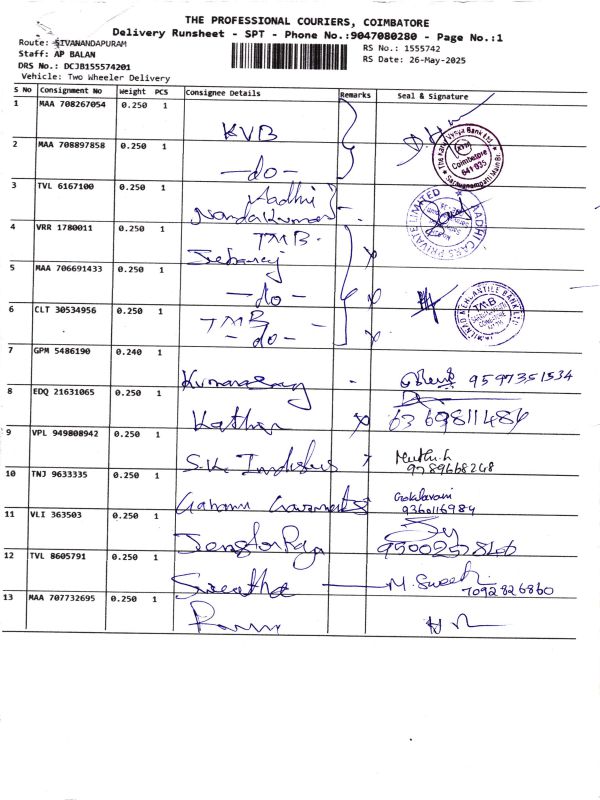 THE PROFESSIONAL COURIERS, COIMBATORE
Delivery Runsheet - SPT - Phone No.:9047080280 - Page No.:1
Route: SIVANANDAPURAM
RS No.: 1555742
Staff: AP BALAN
RS Date: 26-May-2025
DRS No.: DCJB155574201
Vehicle: Two Wheeler Delivery
S No Consignment No Weight PCS Consignee Details Remarks Seal & Signature
1 MAA 708267054 0.250 1 KVB
2 MAA 708897858 0.250 1 -do-
The Karur Vysya Bank Ltd. Coimbatore 641 035 Saravanampatti Main Br.
3 TVL 6167100 0.250 1 Aadhi
Nandakumar
AADHI CARS PRIVATE LIMITED
4 VRR 1780011 0.250 1 TMB.
Jebaraj
5 MAA 706691433 0.250 1 -do-
TMB
6 CLT 30534956 0.250 1 TMB
-do-
7 GPM 5486190 0.240 1 9597351534
8 EDQ 21631065 0.250 1 Kathir 6369811484
9 VPL 949808942 0.250 1 S.K. Muthu.h
9789468248
10 TNJ 9633335 0.250 1 Garments Gokilavani
9360116984
11 VLI 363503 0.250 1 9500257846
12 TVL 8605791 0.250 1 Swetha M. Sweth
7092826860
13 MAA 707732695 0.250 1